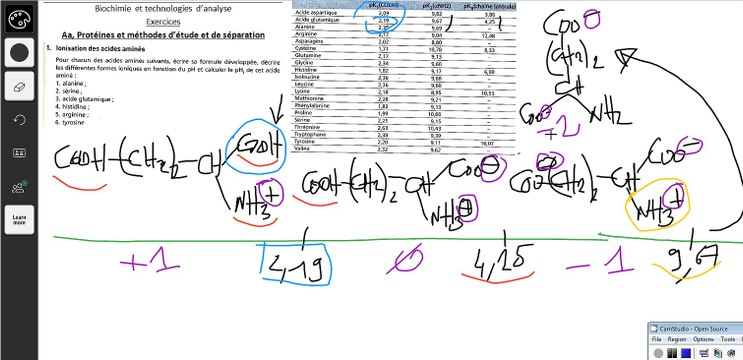 Biochimie et technologies d'analyse
Exercices
Aa, Protéines et méthodes d'étude et de séparation
1. Ionisation des acides aminés
Pour chacun des acides aminés suivants, écrire sa formule développée, décrire
les différentes formes ioniques en fonction du pH et calculer le pHi de cet acide
aminé :
1. alanine ;
2. sérine ;
3. acide glutamique ;
4. histidine ;
5. arginine ;
6. tyrosine
Acide aspartique 2,09 9,82 3,86
Acide glutamique 2,19 9,67 4,25
Alanine 9,69
Arginine 9,04 12,48
Asparagine 2,02 8,80
Cystéine 1,71 10,78 8,33
Glutamine 2,17 9,13
Glycine 2,34 9,60
Histidine 1,82 9,17 6,00
Isoleucine 2,36 9,68
Leucine 2,36 9,60
Lysine 2,18 8,95 10,53
Méthionine 2,28 9,21
Phénylalanine 1,83 9,13
Proline 1,99 10,60
Sérine 2,21 9,15
Thréonine 2,63 10,43
Tryptophane 2,38 9,39
Tyrosine 2,20 9,11 10,07
Valine 2,32 9,62
COO⊖
(CH2)2
CH
COO⊖ NH2
-2
COOH-(CH2)2-CH COOH
NH3+
COOH-(CH2)2-CH COO⊖
NH3+
COO⊖-(CH2)2-CH COO⊖
NH3+
+1 2,19 0 4,25 -1 9,67
Learn
more
CamStudio - Open Source
File Region Options Tools